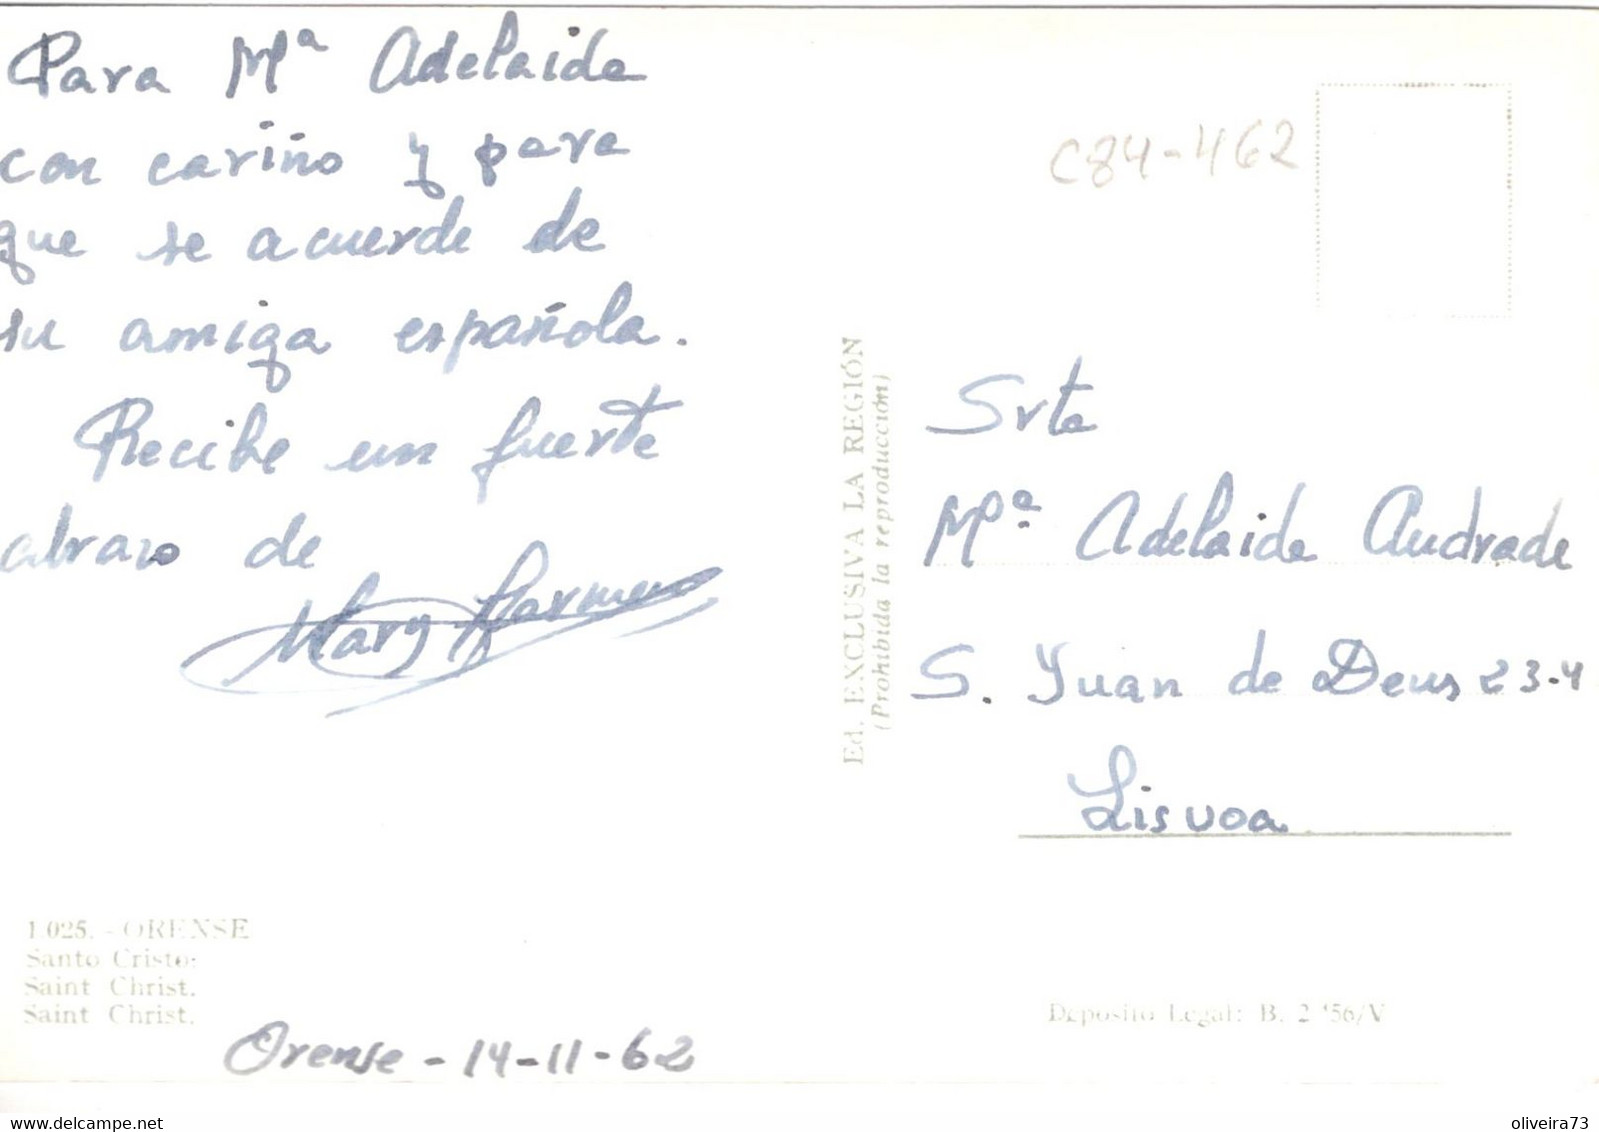 Para Mª Adelaide
con cariño y para
que se acuerde de
su amiga española.
Recibe un fuerte
abrazo de
Mary Carmen
C84-462
Srta
Mª Adelaide Andrade
S. Juan de Deus 23-4
Lisvoa
Ed. EXCLUSIVA LA REGIÓN
(Prohibida la reproducción)
1.025. - ORENSE
Santo Cristo.
Saint Christ.
Saint Christ.
Depósito Legal: B. 2 '56/V
Orense - 14-11-62
delcampe.net
oliveira73